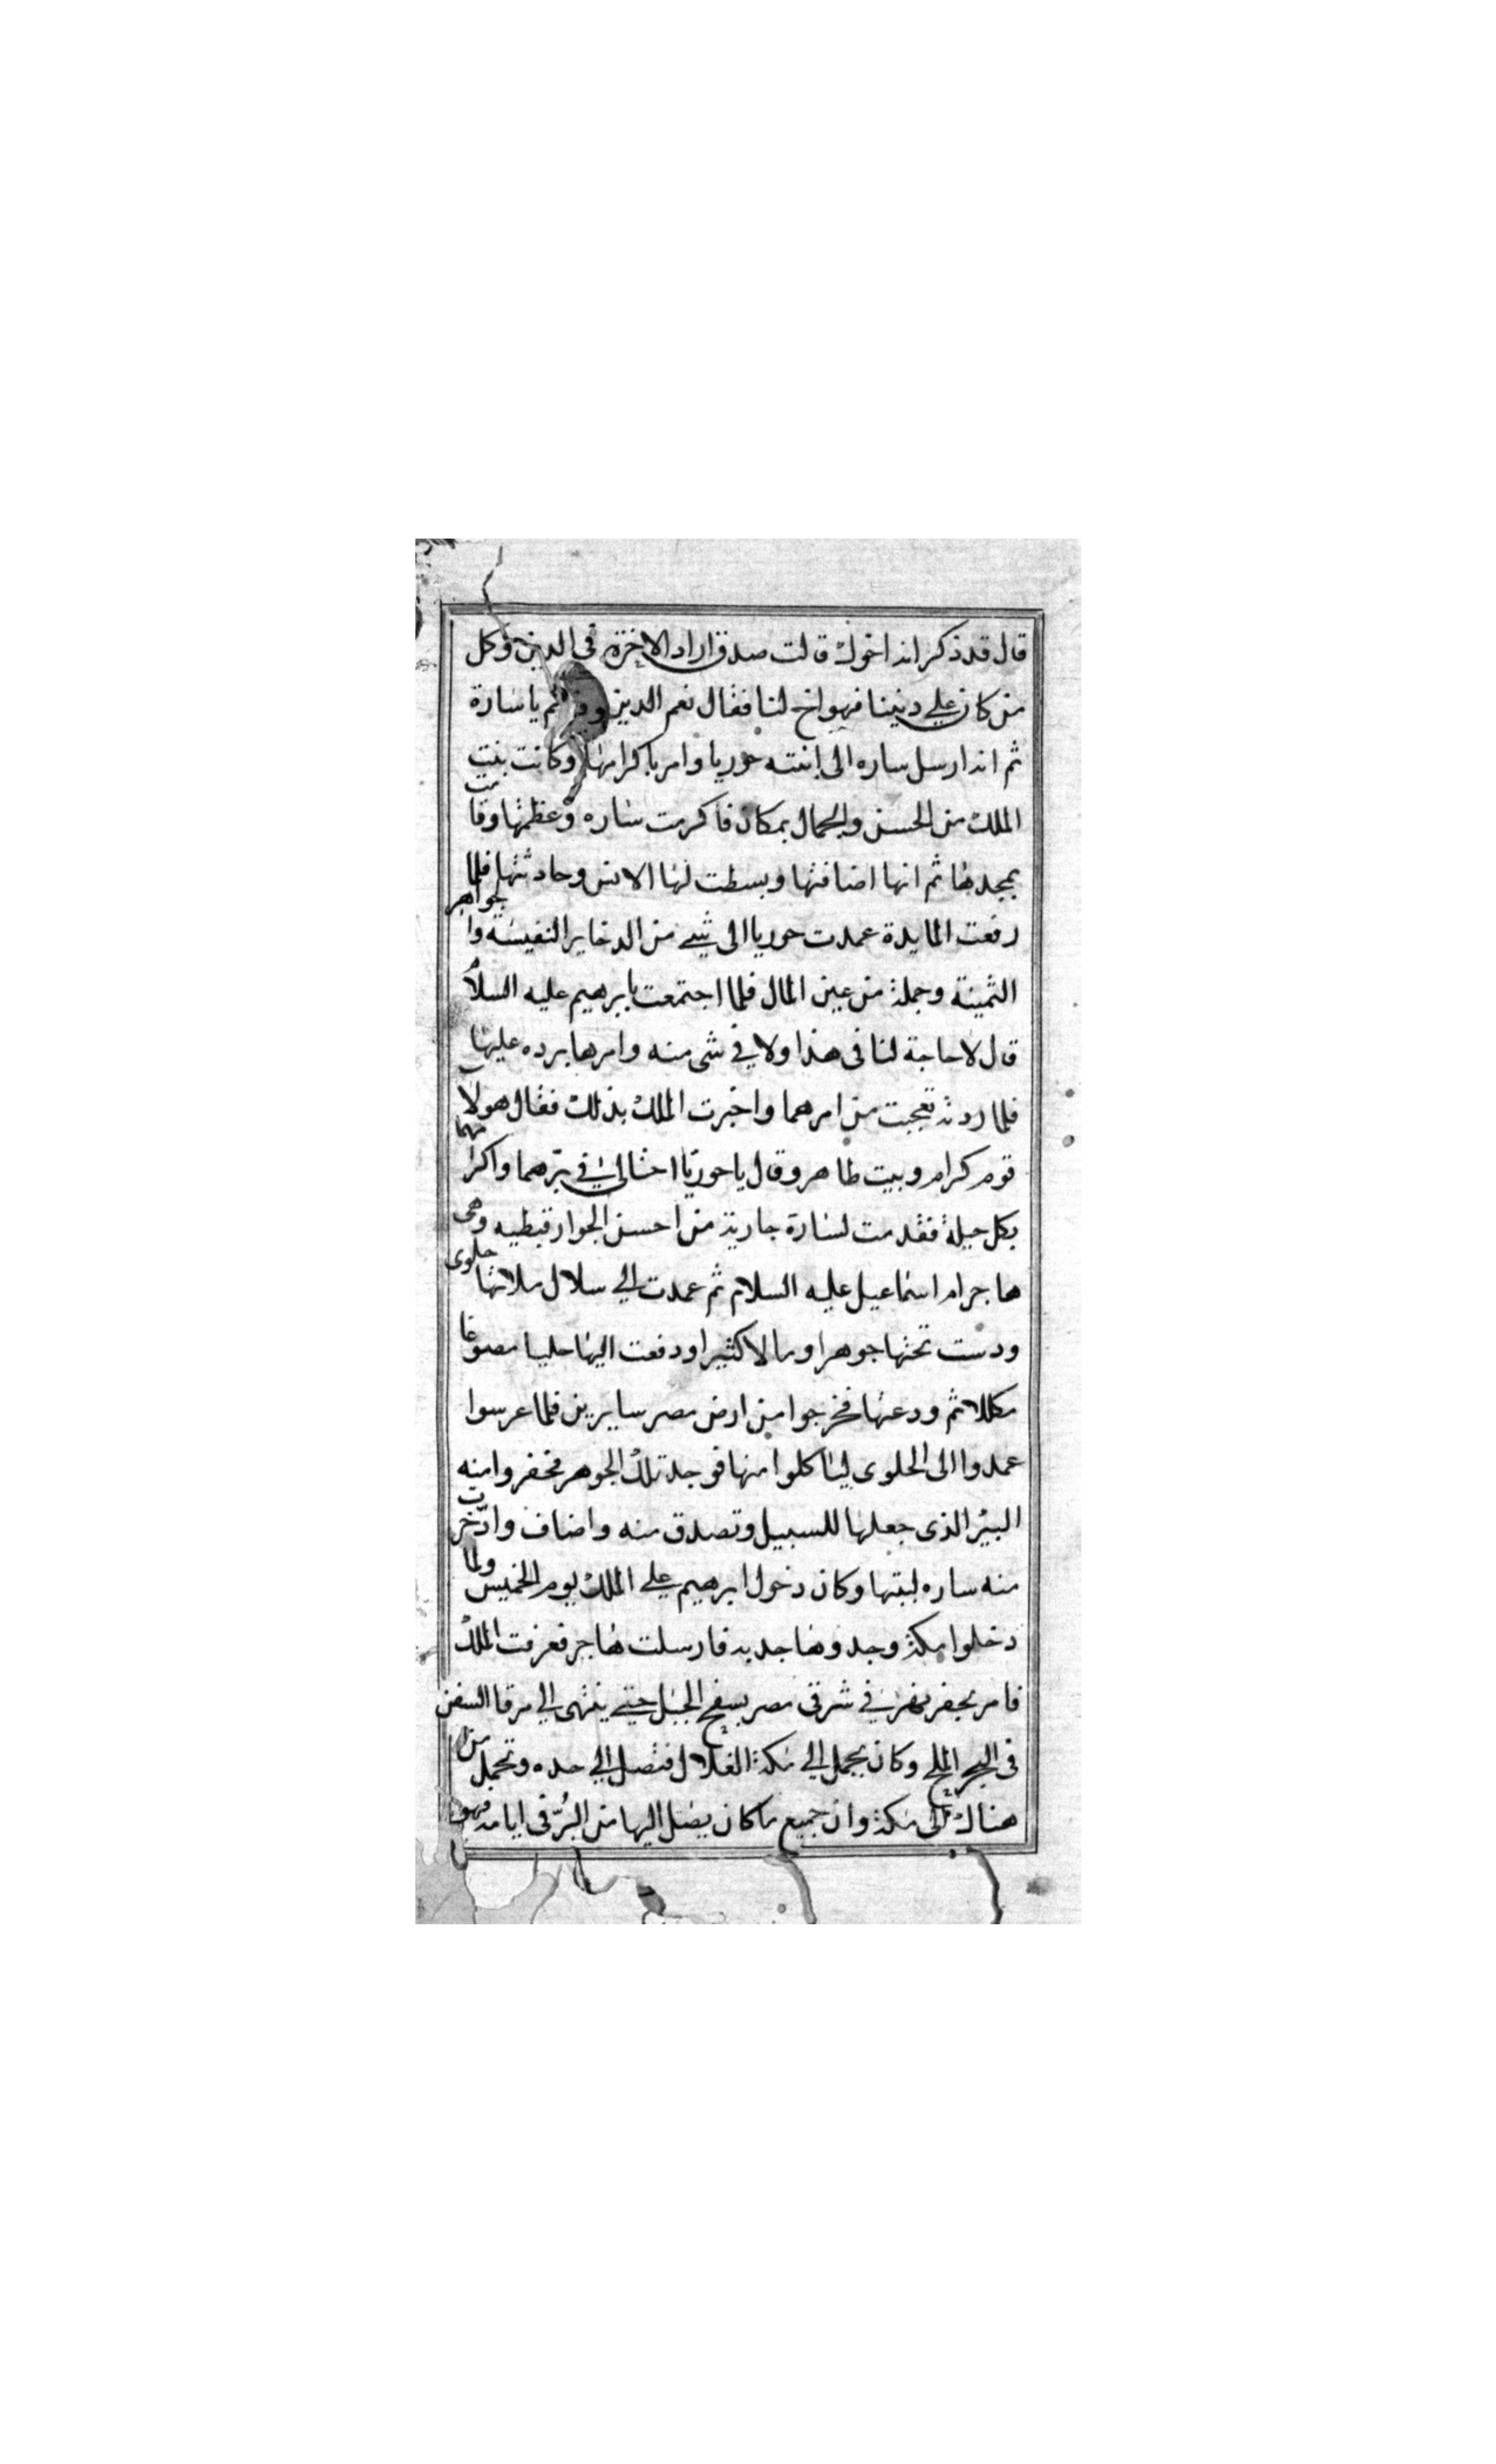 قال قد ذكر انه اخوك قالت صدق اراد الاخرة في الدين وكل
من كان على ديننا فهو اخ لنا فقال نعم الدين يا سارة
ثم انه ارسل ساره الى ابنته حوريا وامر باكرامها وكانت بنت
الملك من الحسن والجمال بمكان فاكرمت ساره وعظمتها وقامت
بمجدها ثم انها اضافتها وبسطت لها الانس وحادثتها فلما
رفعت المايدة عمدت حوريا الى شيء من الدخاير النفيسة والجواهر
الثمينة وجملة من عين المال فلما اجتمعت بابرهيم عليه السلام
قال لا حاجة لنا في هذا ولا في شى منه وامرها برده عليها
فلما ردته تعجبت من امرهما واخبرت الملك بذلك فقال هولا
قوم كرام وبيت طاهر وقال يا حوريا احتالى في برهما واكرامهما
بكل حيلة فقدمت لسارة جارية من احسن الجوار قبطيه وهى
هاجر ام اسماعيل عليه السلام ثم عمدت الي سلال ملاتها حلوى
ودست تحتها جوهرا ومالا كثيرا ودفعت اليها حليا مصوغا
مكللا ثم ودعتها فخرجوا من ارض مصر سايرين فلما عرسوا
عمدوا الى الحلوى لياكلوا منها فوجد تلك الجوهر فحفروا منه
البير الذى جعلها للسبيل وتصدق منه واضاف وادخرت
منه ساره لبيتها وكان دخول ابرهيم على الملك يوم الخميس ولما
دخلوا مكة وجدوها جدبه فارسلت هاجر فعرفت الملك
فامر بحفر نهر في شرقى مصر بسفح الجبل حتى ينتهى الي مرقا السفن
فى البحر الملح وكان يحمل الي مكة الغلال فتصل الي جده وتحمل من
هناك الى مكة وان جميع ما كان يصل اليها من البر فى ايامه فهو